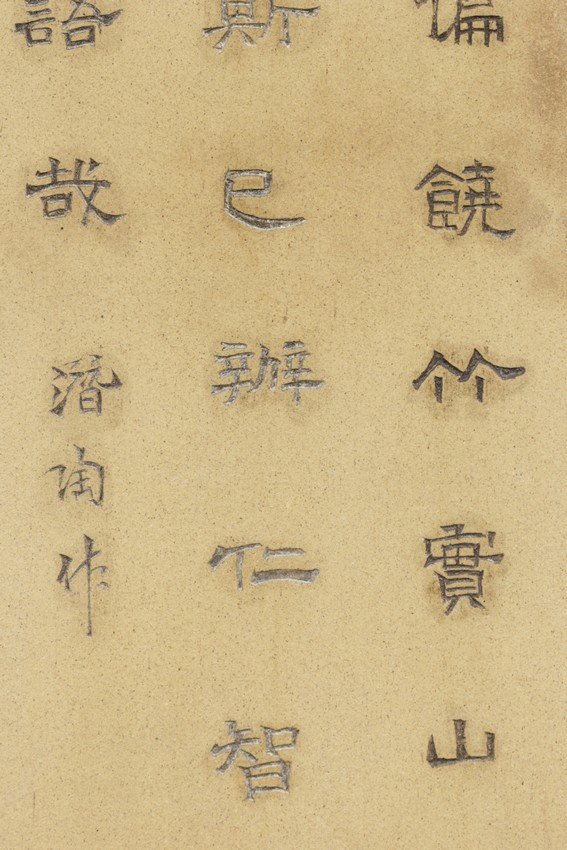 偏饒竹實山
斯已辦仁智
語哉
潛陶作